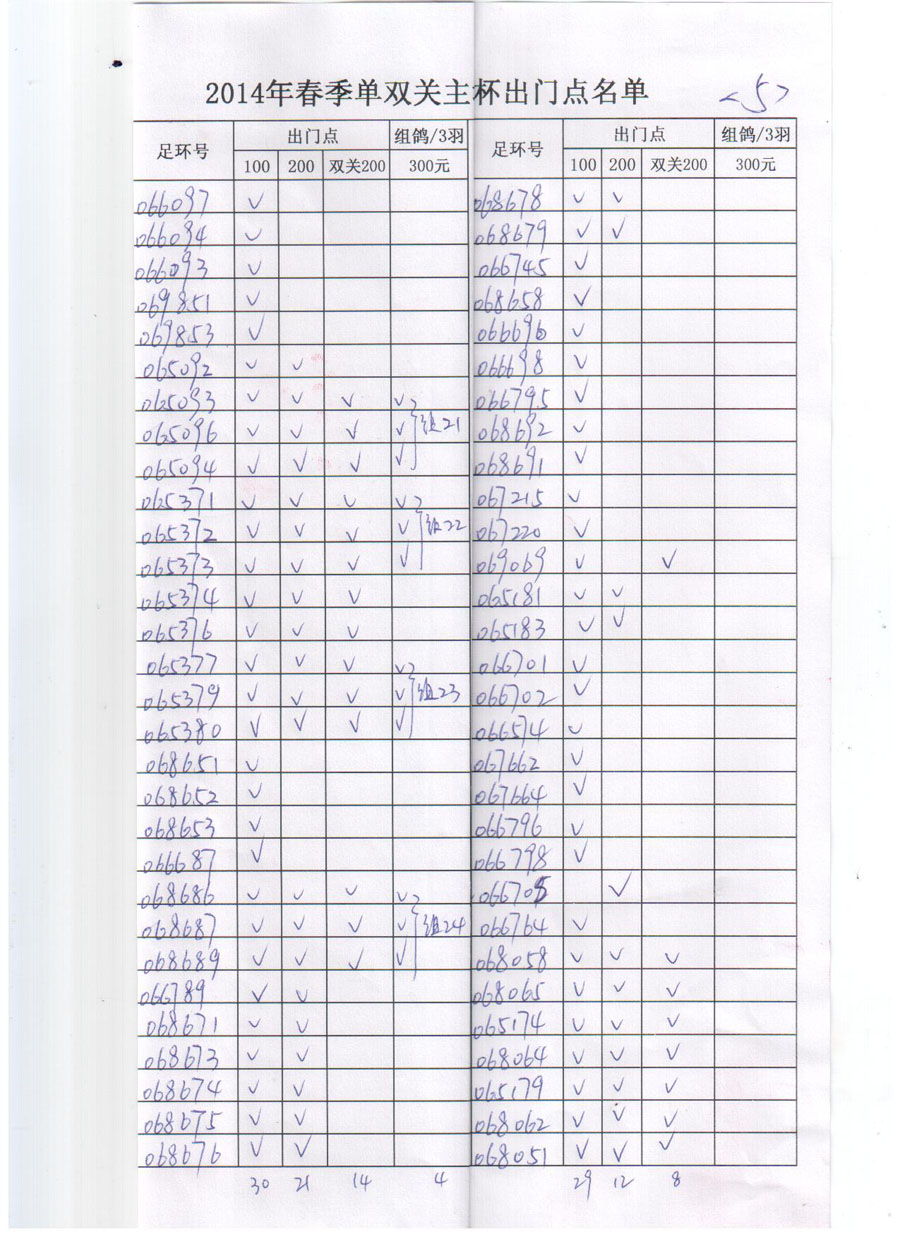 2014年春季单双关主杯出门点名单 <5>
足环号 出门点 组鸽/3羽 足环号 出门点 组鸽/3羽
100 200 双关200 300元 100 200 双关200 300元
066097 ✓ 068678 ✓ ✓
066094 ✓ 068679 ✓ ✓
066093 ✓ 066745 ✓
069851 ✓ 068658 ✓
069853 ✓ 066696 ✓
065092 ✓ ✓ 066698 ✓
065093 ✓ ✓ ✓ ✓ 066795 ✓
065096 ✓ ✓ ✓ ✓ 组21 068692 ✓
065094 ✓ ✓ ✓ ✓ 068691 ✓
065371 ✓ ✓ ✓ ✓ 067215 ✓
065372 ✓ ✓ ✓ ✓ 组22 067220 ✓
065373 ✓ ✓ ✓ ✓ 069069 ✓ ✓
065374 ✓ ✓ ✓ 065181 ✓ ✓
065376 ✓ ✓ ✓ 065183 ✓ ✓
065377 ✓ ✓ ✓ ✓ 066701 ✓
065379 ✓ ✓ ✓ ✓ 组23 066702 ✓
065380 ✓ ✓ ✓ ✓ 066574 ✓
068651 ✓ 067662 ✓
068652 ✓ 067664 ✓
068653 ✓ 066796 ✓
066687 ✓ 066798 ✓
068686 ✓ ✓ ✓ ✓ 066705 ✓
068687 ✓ ✓ ✓ ✓ 组24 066764 ✓
068689 ✓ ✓ ✓ ✓ 068058 ✓ ✓ ✓
066789 ✓ ✓ 068065 ✓ ✓ ✓
068671 ✓ ✓ 065174 ✓ ✓ ✓
068673 ✓ ✓ 068064 ✓ ✓ ✓
068674 ✓ ✓ 065179 ✓ ✓ ✓
068675 ✓ ✓ 068062 ✓ ✓ ✓
068676 ✓ ✓ 068051 ✓ ✓ ✓
30 21 14 4 29 12 8